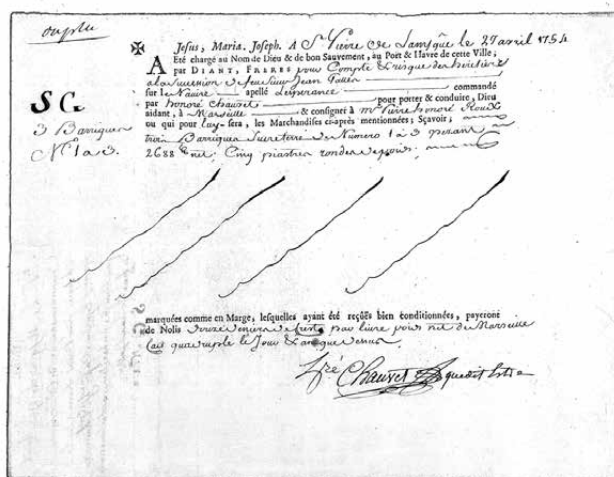 duplu
✠ Jesus, Maria. Joseph. A St. Pierre de la mque le 27 avril 1754
Eté chargé au Nom de Dieu & de bon Sauvement, au Port & Havre de cette Ville;
A par DIANT, FRERES pour Compte & risque des heritiers
a la succession de feu Sieur Jean
sur le Navire apellé Lesperance commandé
par honoré Chauvet pour porter & conduire, Dieu
aidant, à Marseille & consigné à Mr Pierre honoré Roux
ou qui pour Luy sera, les Marchandises ci-après mentionnées; Sçavoir;
SG
3 Barriques
No. 1 a 3.
trois Barriques Sucre terré du Numero 1 a 3 pesant
2688 net; Cinq piastres rondes
marquées comme en Marge, lesquelles ayant été reçûës bien conditionnées, payeront
de Nolis deniers par livre poids net de Marseille
fait quadruple le Jour &
Chauvet